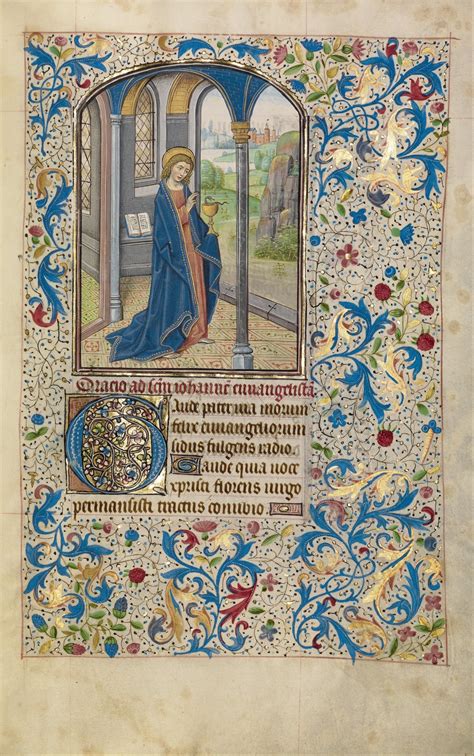 Oracio ad scm̄ iohannē euuangelistā
Gaude pater via morum
felix euuangeliorum
sidus fulgens radio
Gaude qua uoce
xpristi florens uirgo
permansisti tractus conubio